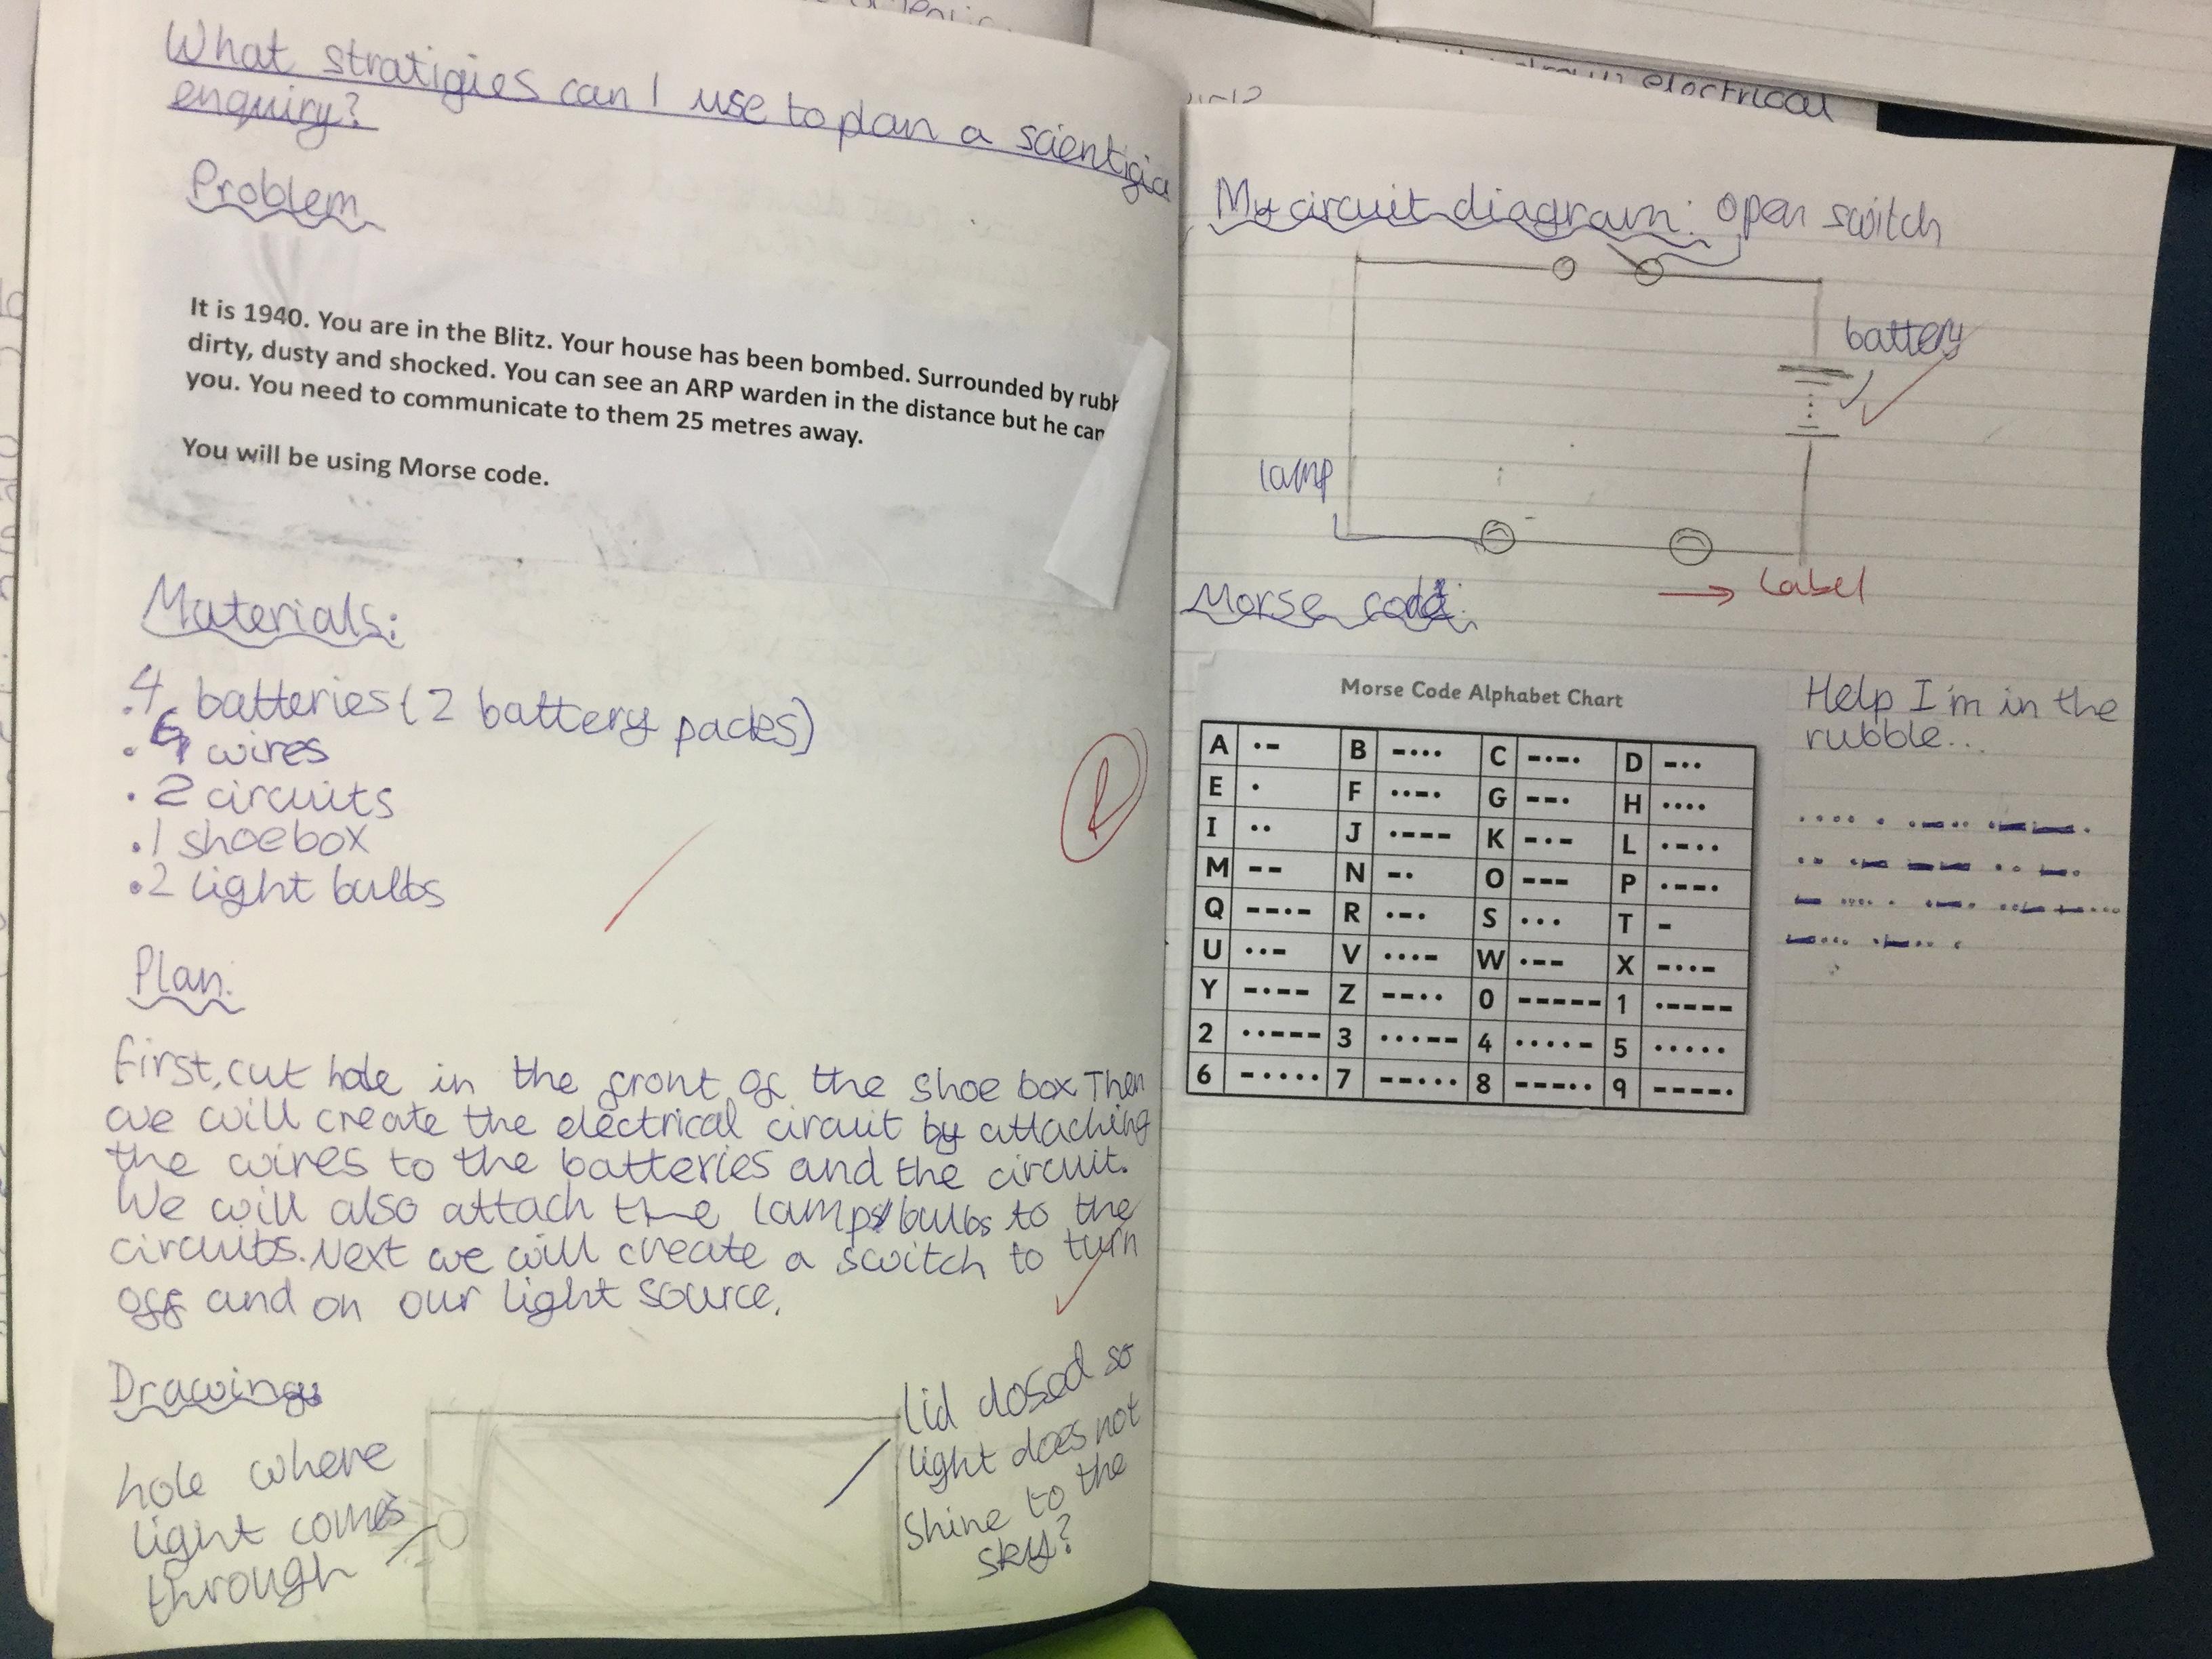 What stratigies can I use to plan a scientific
enquiry?
Problem
It is 1940. You are in the Blitz. Your house has been bombed. Surrounded by
dirty, dusty and shocked. You can see an ARP warden in the distance but he
you. You need to communicate to them 25 metres away.
You will be using Morse code.
Materials:
. 4 batteries (2 battery packs)
. wires
. 2 circuits
. 1 shoebox
. 2 light bulbs
Plan:
First, cut hole in the front of the shoe box Then
we will create the electrical circuit by attaching
the wires to the batteries and the circuit.
We will also attach the lamps/bulbs to the
circuits. Next we will create a switch to turn
off and on our light source.
Drawings
hole where
light comes
through
lid closed so
light does not
shine to the
sky?
electrical
My circuit diagram: open switch
battery
lamp
Label
Morse code:
Morse Code Alphabet Chart
A ·– B –··· C –·–· D –··
E · F ··–· G ––· H ····
I ·· J ·––– K –·– L ·–··
M –– N –· O ––– P ·––·
Q ––·– R ·–· S ··· T –
U ··– V ···– W ·–– X –··–
Y –·–– Z ––·· 0 ––––– 1 ·––––
2 ··––– 3 ···–– 4 ····– 5 ·····
6 –···· 7 ––··· 8 –––·· 9 ––––·
Help I'm in the
rubble...